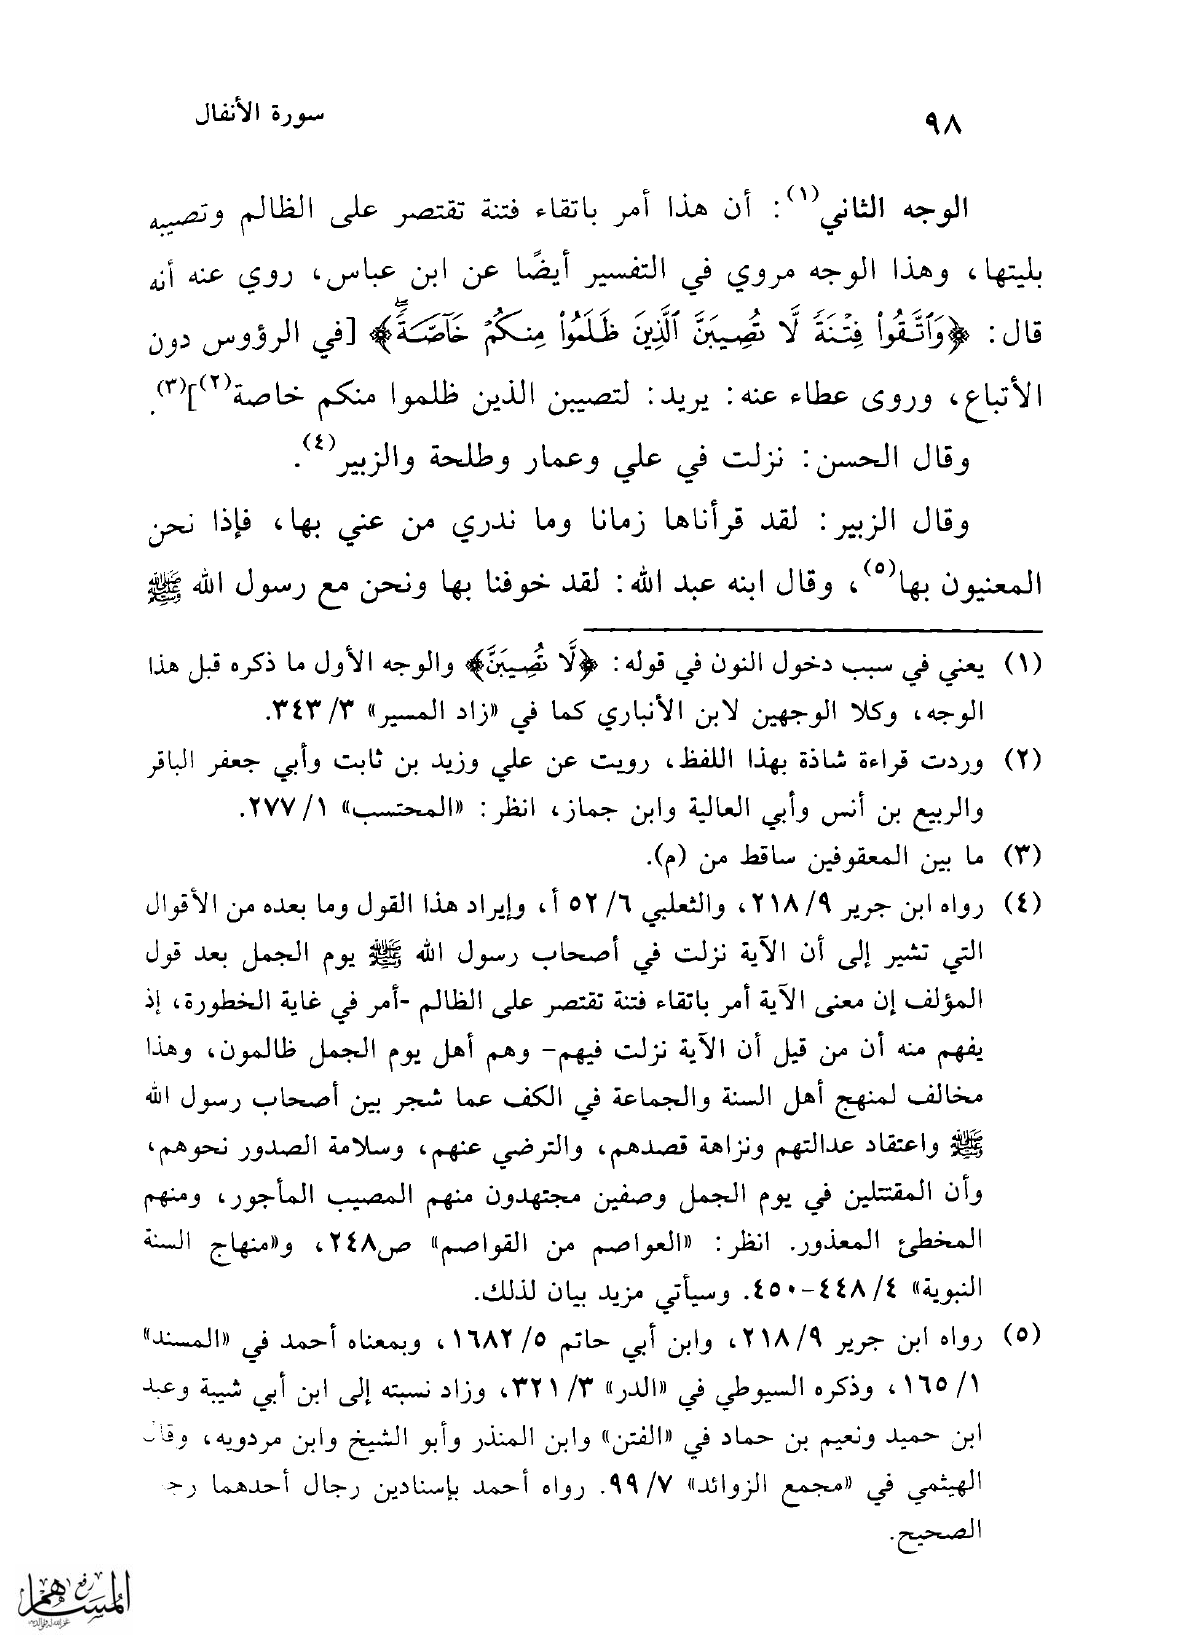 ٩٨
سورة الأنفال
الوجه الثاني(١): أن هذا أمر باتقاء فتنة تقتصر على الظالم وتصيبه
بليتها، وهذا الوجه مروي في التفسير أيضًا عن ابن عباس، روي عنه أنه
قال: ﴿وَٱتَّقُوا۟ فِتْنَةً لَّا تُصِيبَنَّ ٱلَّذِينَ ظَلَمُوا۟ مِنكُمْ خَآصَّةً﴾ [في الرؤوس دون
الأتباع، وروى عطاء عنه: يريد: لتصيبن الذين ظلموا منكم خاصة(٢)](٣).
وقال الحسن: نزلت في علي وعمار وطلحة والزبير(٤).
وقال الزبير: لقد قرأناها زمانا وما ندري من عني بها، فإذا نحن
المعنيون بها(٥)، وقال ابنه عبد الله: لقد خوفنا بها ونحن مع رسول الله ﷺ
(١) يعني في سبب دخول النون في قوله: ﴿لَّا تُصِيبَنَّ﴾ والوجه الأول ما ذكره قبل هذا
الوجه، وكلا الوجهين لابن الأنباري كما في «زاد المسير» ٣/ ٣٤٣.
(٢) وردت قراءة شاذة بهذا اللفظ، رويت عن علي وزيد بن ثابت وأبي جعفر الباقر
والربيع بن أنس وأبي العالية وابن جماز، انظر: «المحتسب» ١/ ٢٧٧.
(٣) ما بين المعقوفين ساقط من (م).
(٤) رواه ابن جرير ٩/ ٢١٨، والثعلبي ٦/ ٥٢ أ، وإيراد هذا القول وما بعده من الأقوال
التي تشير إلى أن الآية نزلت في أصحاب رسول الله ﷺ يوم الجمل بعد قول
المؤلف إن معنى الآية أمر باتقاء فتنة تقتصر على الظالم -أمر في غاية الخطورة، إذ
يفهم منه أن من قيل أن الآية نزلت فيهم- وهم أهل يوم الجمل ظالمون، وهذا
مخالف لمنهج أهل السنة والجماعة في الكف عما شجر بين أصحاب رسول الله
ﷺ واعتقاد عدالتهم ونزاهة قصدهم، والترضي عنهم، وسلامة الصدور نحوهم،
وأن المقتتلين في يوم الجمل وصفين مجتهدون منهم المصيب المأجور، ومنهم
المخطئ المعذور. انظر: «العواصم من القواصم» ص٢٤٨، و«منهاج السنة
النبوية» ٤/ ٤٤٨-٤٥٠. وسيأتي مزيد بيان لذلك.
(٥) رواه ابن جرير ٩/ ٢١٨، وابن أبي حاتم ٥/ ١٦٨٢، وبمعناه أحمد في «المسند»
١/ ١٦٥، وذكره السيوطي في «الدر» ٣/ ٣٢١، وزاد نسبته إلى ابن أبي شيبة وعبد
ابن حميد ونعيم بن حماد في «الفتن» وابن المنذر وأبو الشيخ وابن مردويه، وقال
الهيثمي في «مجمع الزوائد» ٧/ ٩٩. رواه أحمد بإسنادين رجال أحدهما
الصحيح.
رفع المساهم